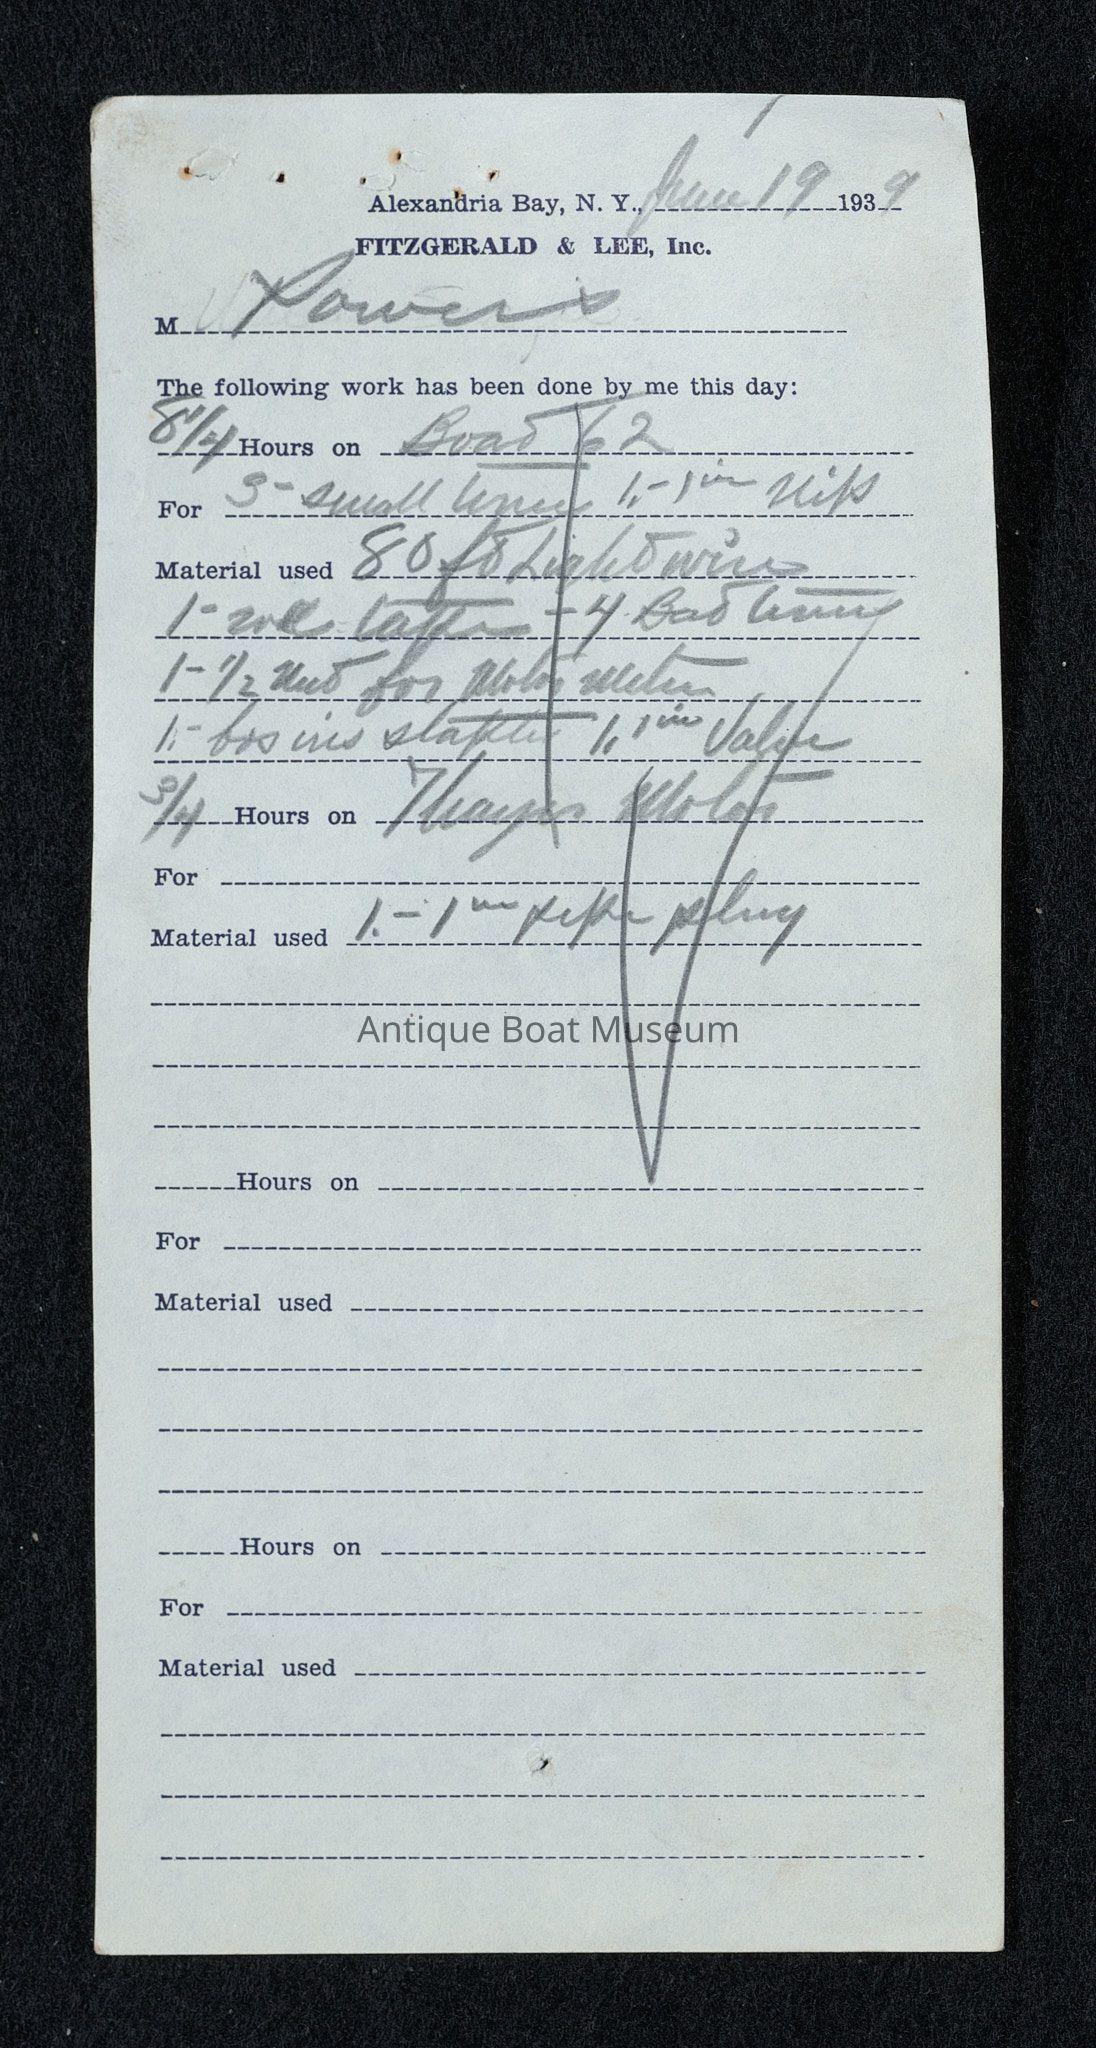 Alexandria Bay, N. Y., June 19 1939
FITZGERALD & LEE, Inc.
M Powers
The following work has been done by me this day:
8 1/4 Hours on Boat 62
For 3- small 1.-1 in
Material used 80 ft Light wire
1- roll tape - 4 Bat
1- 1/2 Nut for Moto Meter
1.- box ins staples 1. 1 in Valve
3/4 Hours on Thayer Motor
For
Material used 1.-1 in pipe plug
Antique Boat Museum
Hours on
For
Material used
Hours on
For
Material used